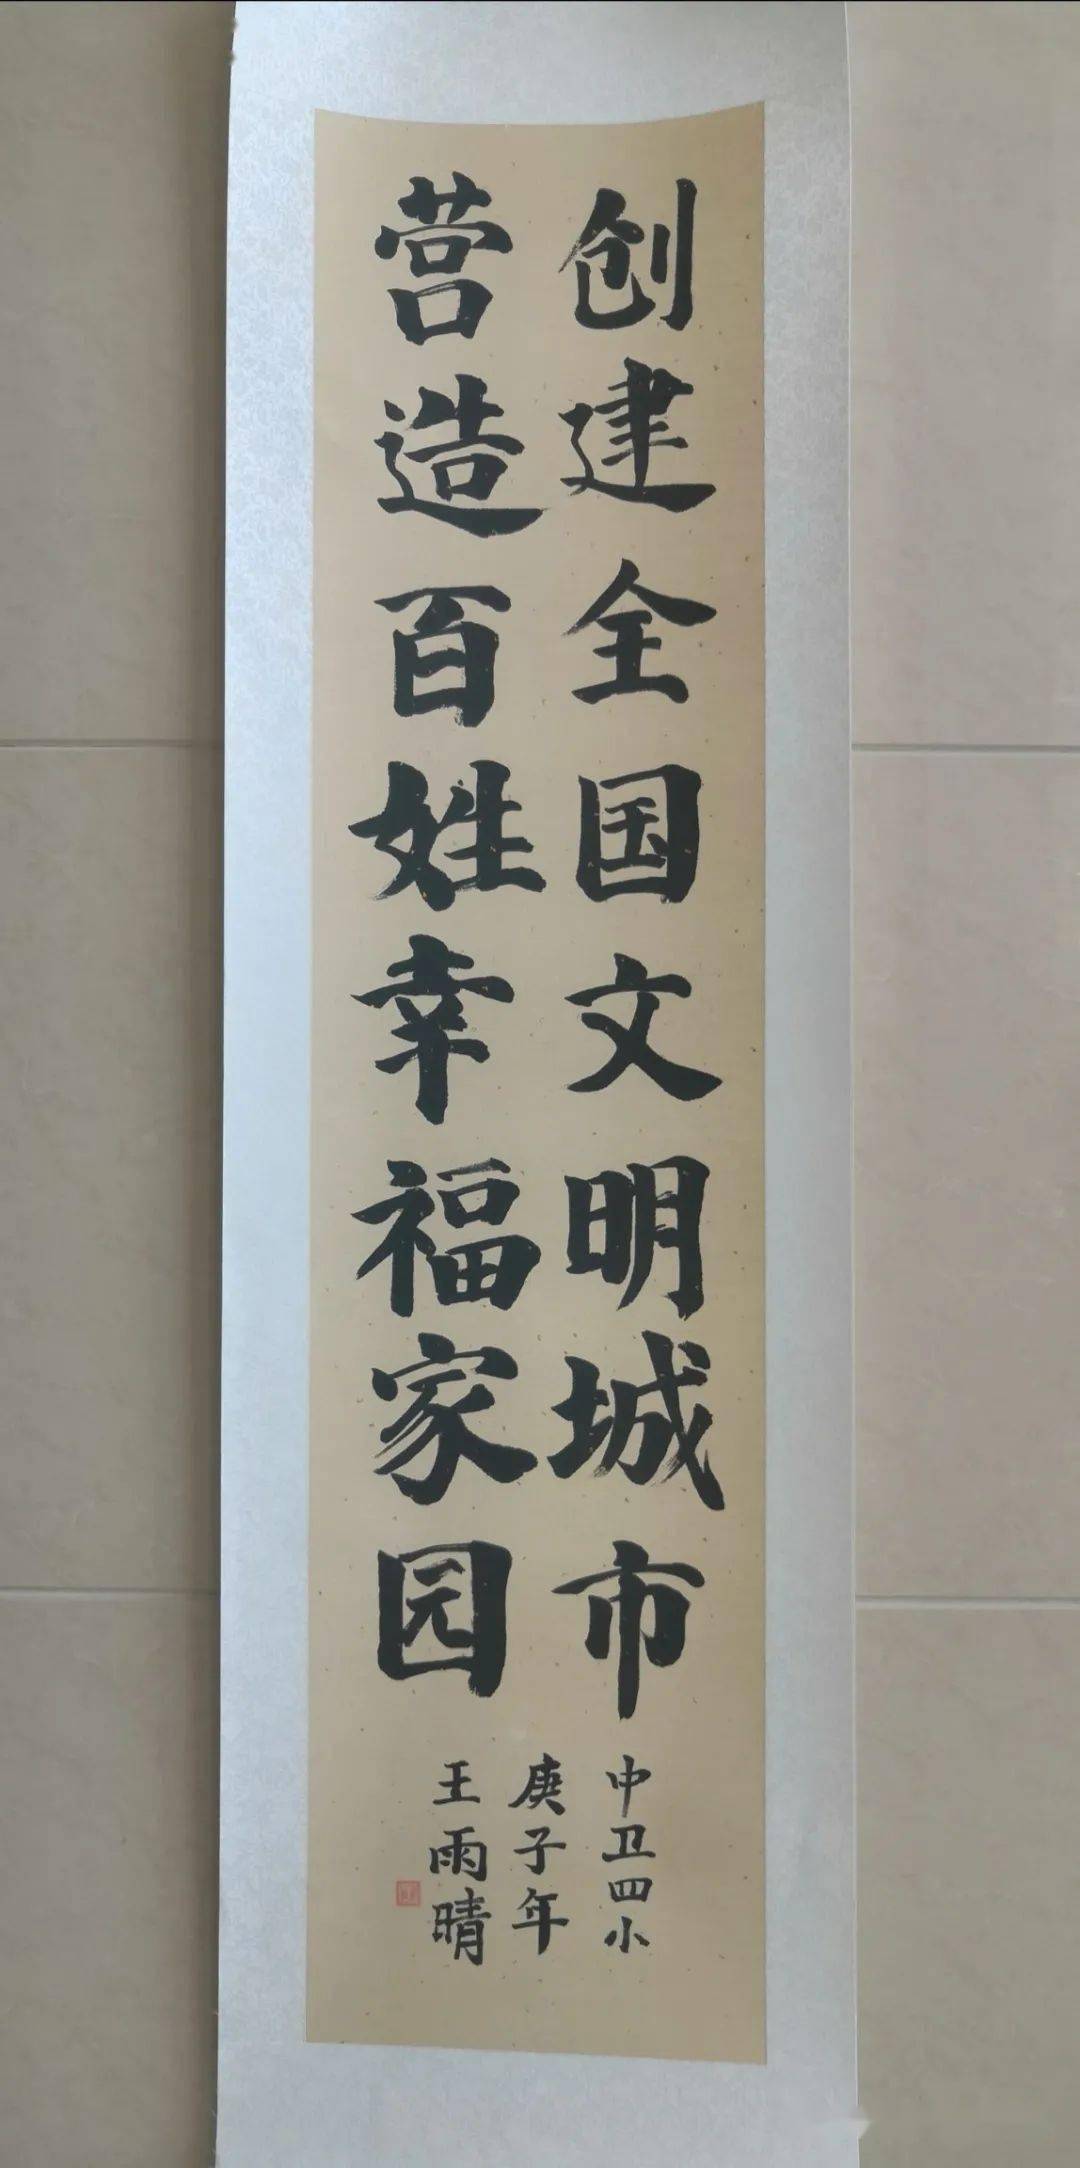 创建全国文明城市
营造百姓幸福家园
中卫四小
庚子年
王雨晴